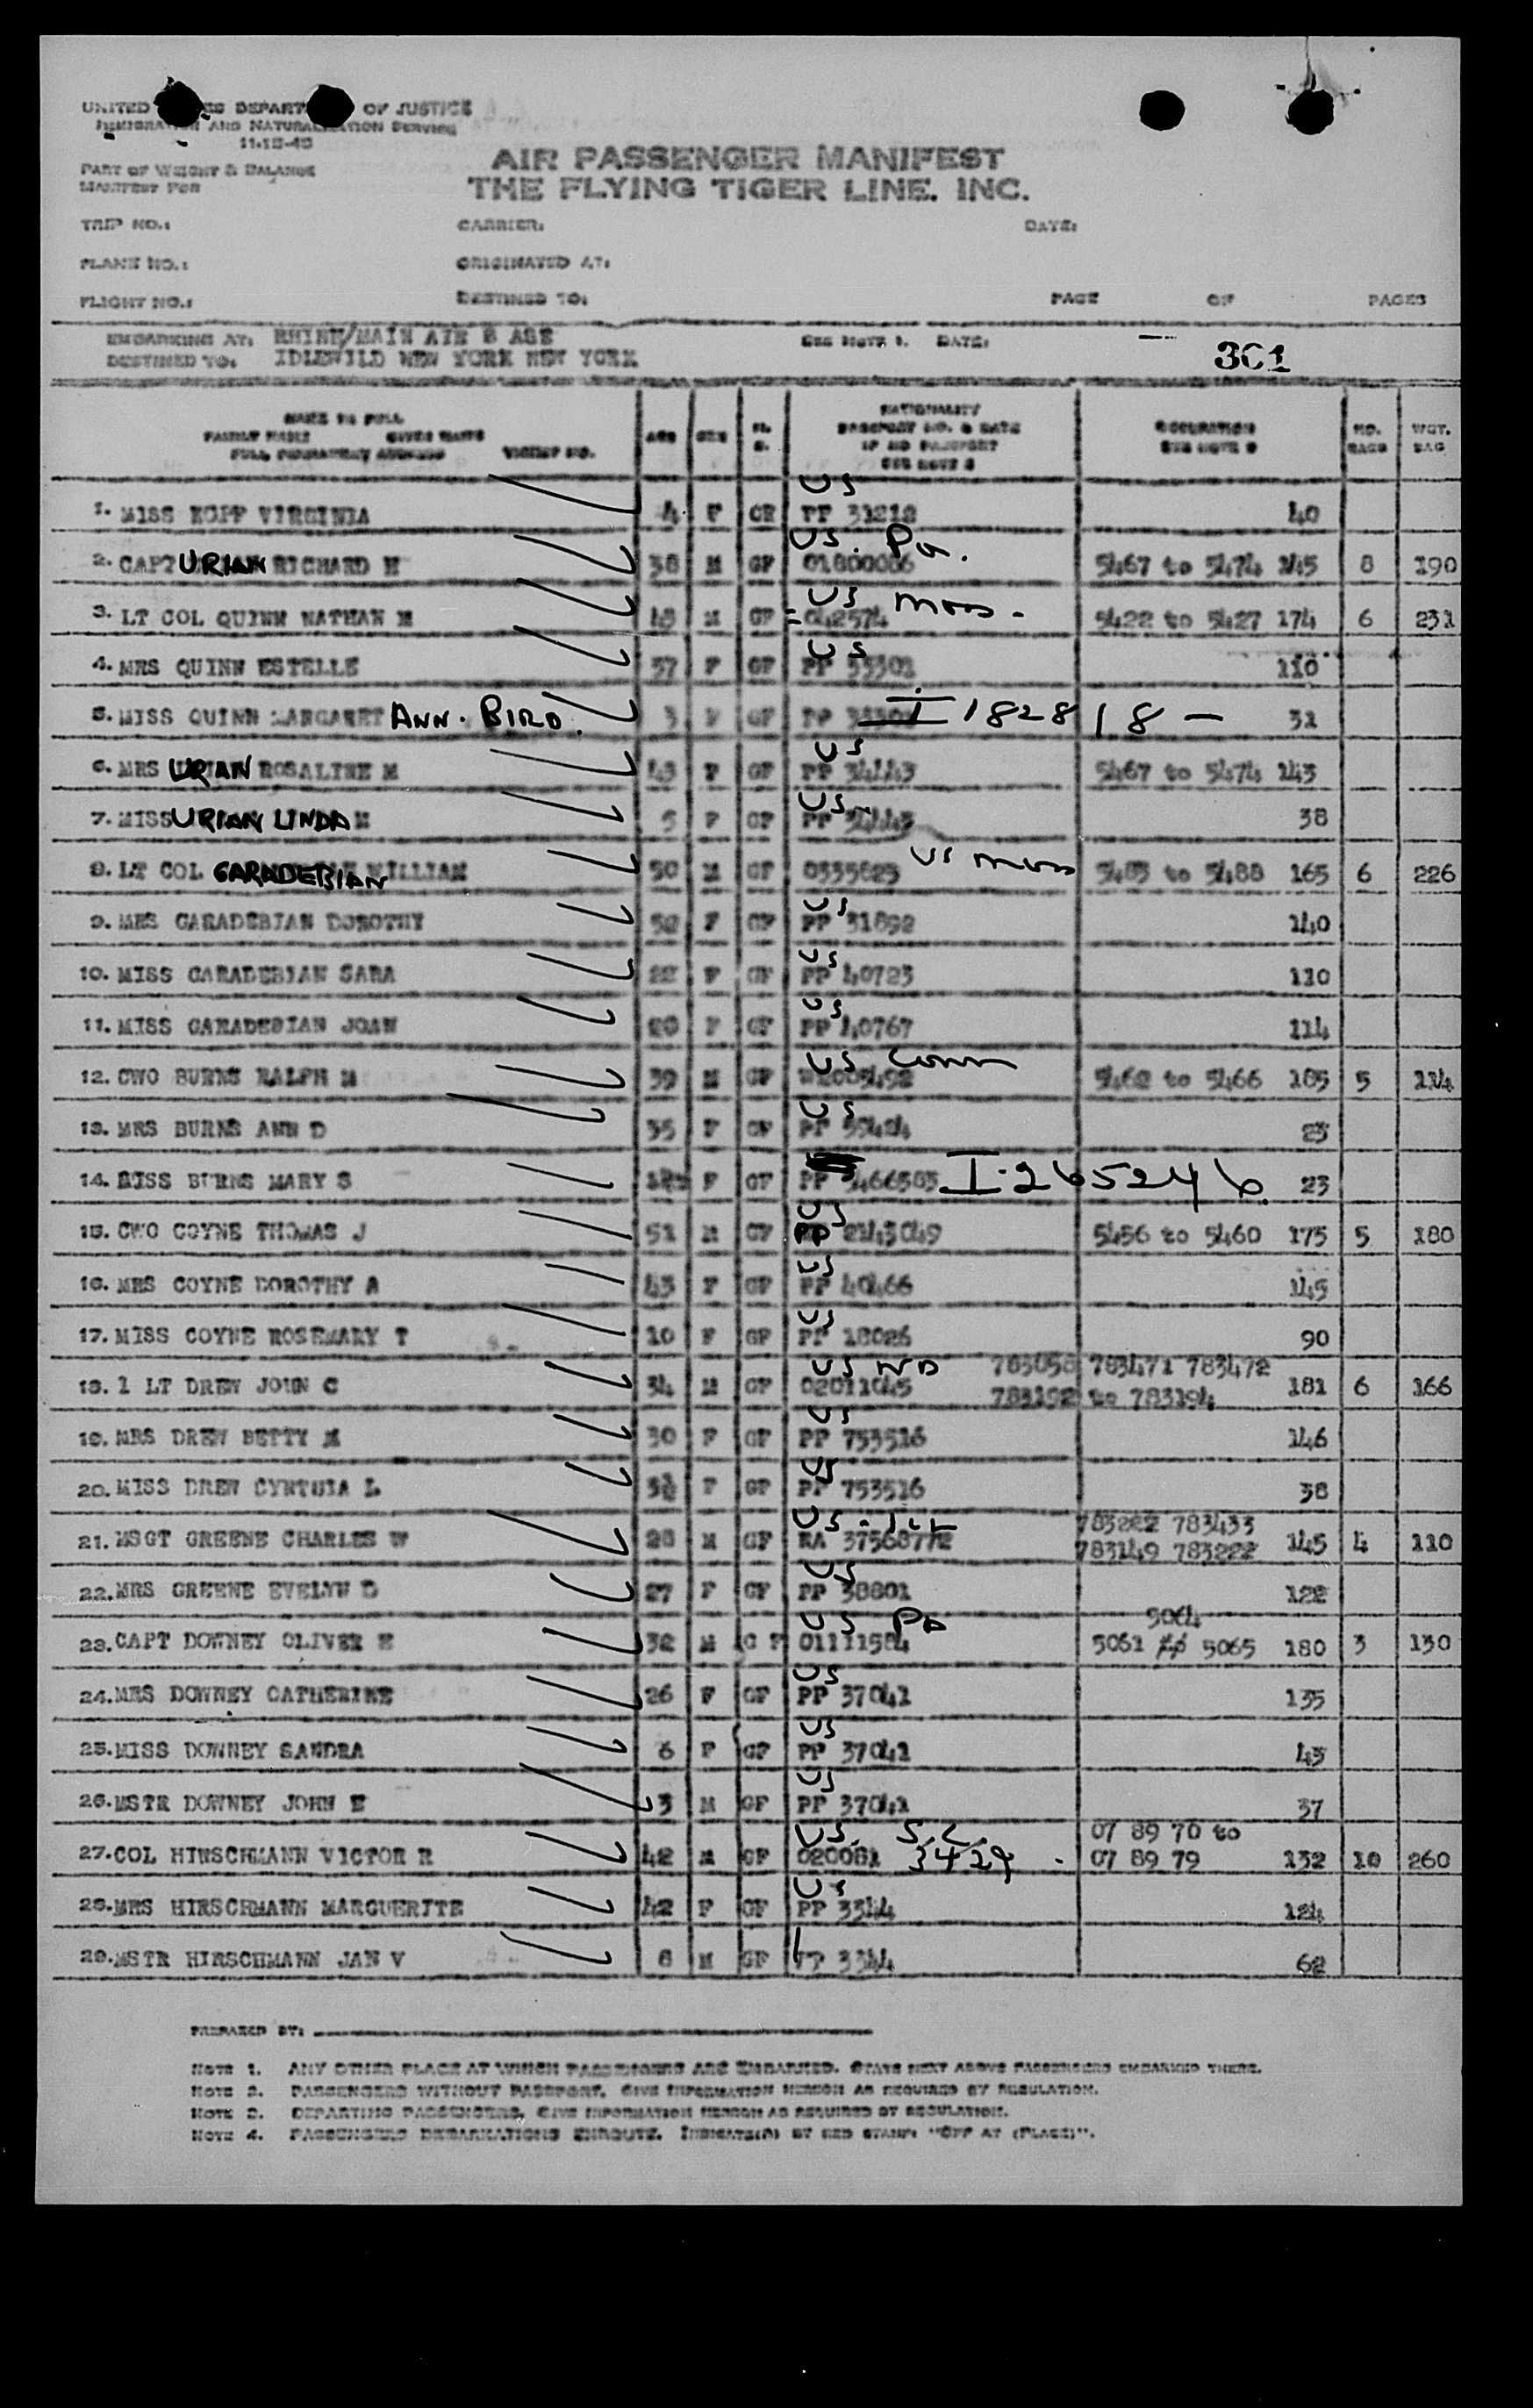 UNITED ES DEPART OF JUSTICE
IMMIGRATION AND NATURALIZATION SERVICE
11-15-45
PART OF WEIGHT & BALANCE
MANIFEST FOR
AIR PASSENGER MANIFEST
THE FLYING TIGER LINE. INC.
TRIP NO.: CARRIER: DATE:
PLANE NO.: ORIGINATED AT:
FLIGHT NO.: DESTINED TO: PAGE OF PAGES
EMBARKING AT: RHINE/MAIN AIR B ASE SEE NOTE 1. DATE:
DESTINED TO: IDLEWILD NEW YORK NEW YORK 301
NAME IN FULL
FAMILY NAME GIVEN NAME
FULL PERMANENT ADDRESS TICKET NO. AGE SEX M. S. NATIONALITY PASSPORT NO. & DATE IF NO PASSPORT SEE NOTE 2 OCCUPATION SEE NOTE 3 NO. BAGS WGT. BAG
1. MISS KOPF VIRGINIA 4 F GF US PP 31212 40
2. CAPT URIAN RICHARD H 38 M GF US. Pa. 01800086 5467 to 5474 145 8 190
3. LT COL QUINN NATHAN M 43 M GF US mass - 042574 5422 to 5427 174 6 231
4. MRS QUINN ESTELLE 37 F GF US PP 33301 110
5. MISS QUINN MARGARET ANN. BIRD. 3 F GF PP I 1828118 - 31
6. MRS URIAN ROSALINE M 43 F GF US PP 34443 5467 to 5474 143
7. MISS URIAN LINDA M 5 F GF US PP 34443 38
8. LT COL GARADEBIAN WILLIAM 50 M GF 0335823 US mass 5483 to 5488 165 6 226
9. MRS GARADEBIAN DOROTHY 50 F GF US PP 31892 140
10. MISS GARADEBIAN SARA 22 F GF US PP 40723 110
11. MISS GARADEBIAN JOAN 20 F GF US PP 40767 114
12. CWO BURNS RALPH M 39 M GF US Conn W2005492 5462 to 5466 185 5 114
13. MRS BURNS ANN D 35 F GF US PP 23
14. MISS BURNS MARY S F GF PP 466583 I-265246 23
15. CWO COYNE THOMAS J 51 M GF US PP 2143049 5456 to 5460 175 5 180
16. MRS COYNE DOROTHY A 43 F GF US PP 40466 145
17. MISS COYNE ROSEMARY T 10 F GF US PP 18026 90
18. 1 LT DREW JOHN C 34 M GF US ND 02011045 783058 783471 783472
783192 to 783194 181 6 166
19. MRS DREW BETTY M 30 F GF US PP 753516 146
20. MISS DREW CYNTHIA L 3½ F GF US PP 753516 38
21. MSGT GREENE CHARLES W 28 M GF US - ILL RA 37568772 783222 783433
783149 783222 145 4 110
22. MRS GREENE EVELYN D 27 F GF US PP 38801 122
23. CAPT DOWNEY OLIVER E 32 M G F US Pa 01111584 5064
5061 5065 180 3 130
24. MRS DOWNEY CATHERINE 26 F GF US PP 37041 135
25. MISS DOWNEY SANDRA 6 F GF US PP 37041 43
26. MSTR DOWNEY JOHN E 3 M GF US PP 37041 37
27. COL HIRSCHMANN VICTOR R 42 M GF US. S.C. 020081 3429 07 89 70 to
07 89 79 132 10 260
28. MRS HIRSCHMANN MARGUERITE 42 F GF US PP 3344 124
29. MSTR HIRSCHMANN JAN V 8 M GF PP 3344 62
PREPARED BY:
NOTE 1. ANY OTHER PLACE AT WHICH PASSENGERS ARE EMBARKED. STATE NEXT ABOVE PASSENGERS EMBARKED THERE.
NOTE 2. PASSENGERS WITHOUT PASSPORT. GIVE INFORMATION HEREON AS REQUIRED BY REGULATION.
NOTE 3. DEPARTING PASSENGERS. GIVE INFORMATION HEREON AS REQUIRED BY REGULATION.
NOTE 4. PASSENGERS DEBARKATIONS ENROUTE. INDICATE(D) BY RED STAMP "OFF AT (PLACE)".